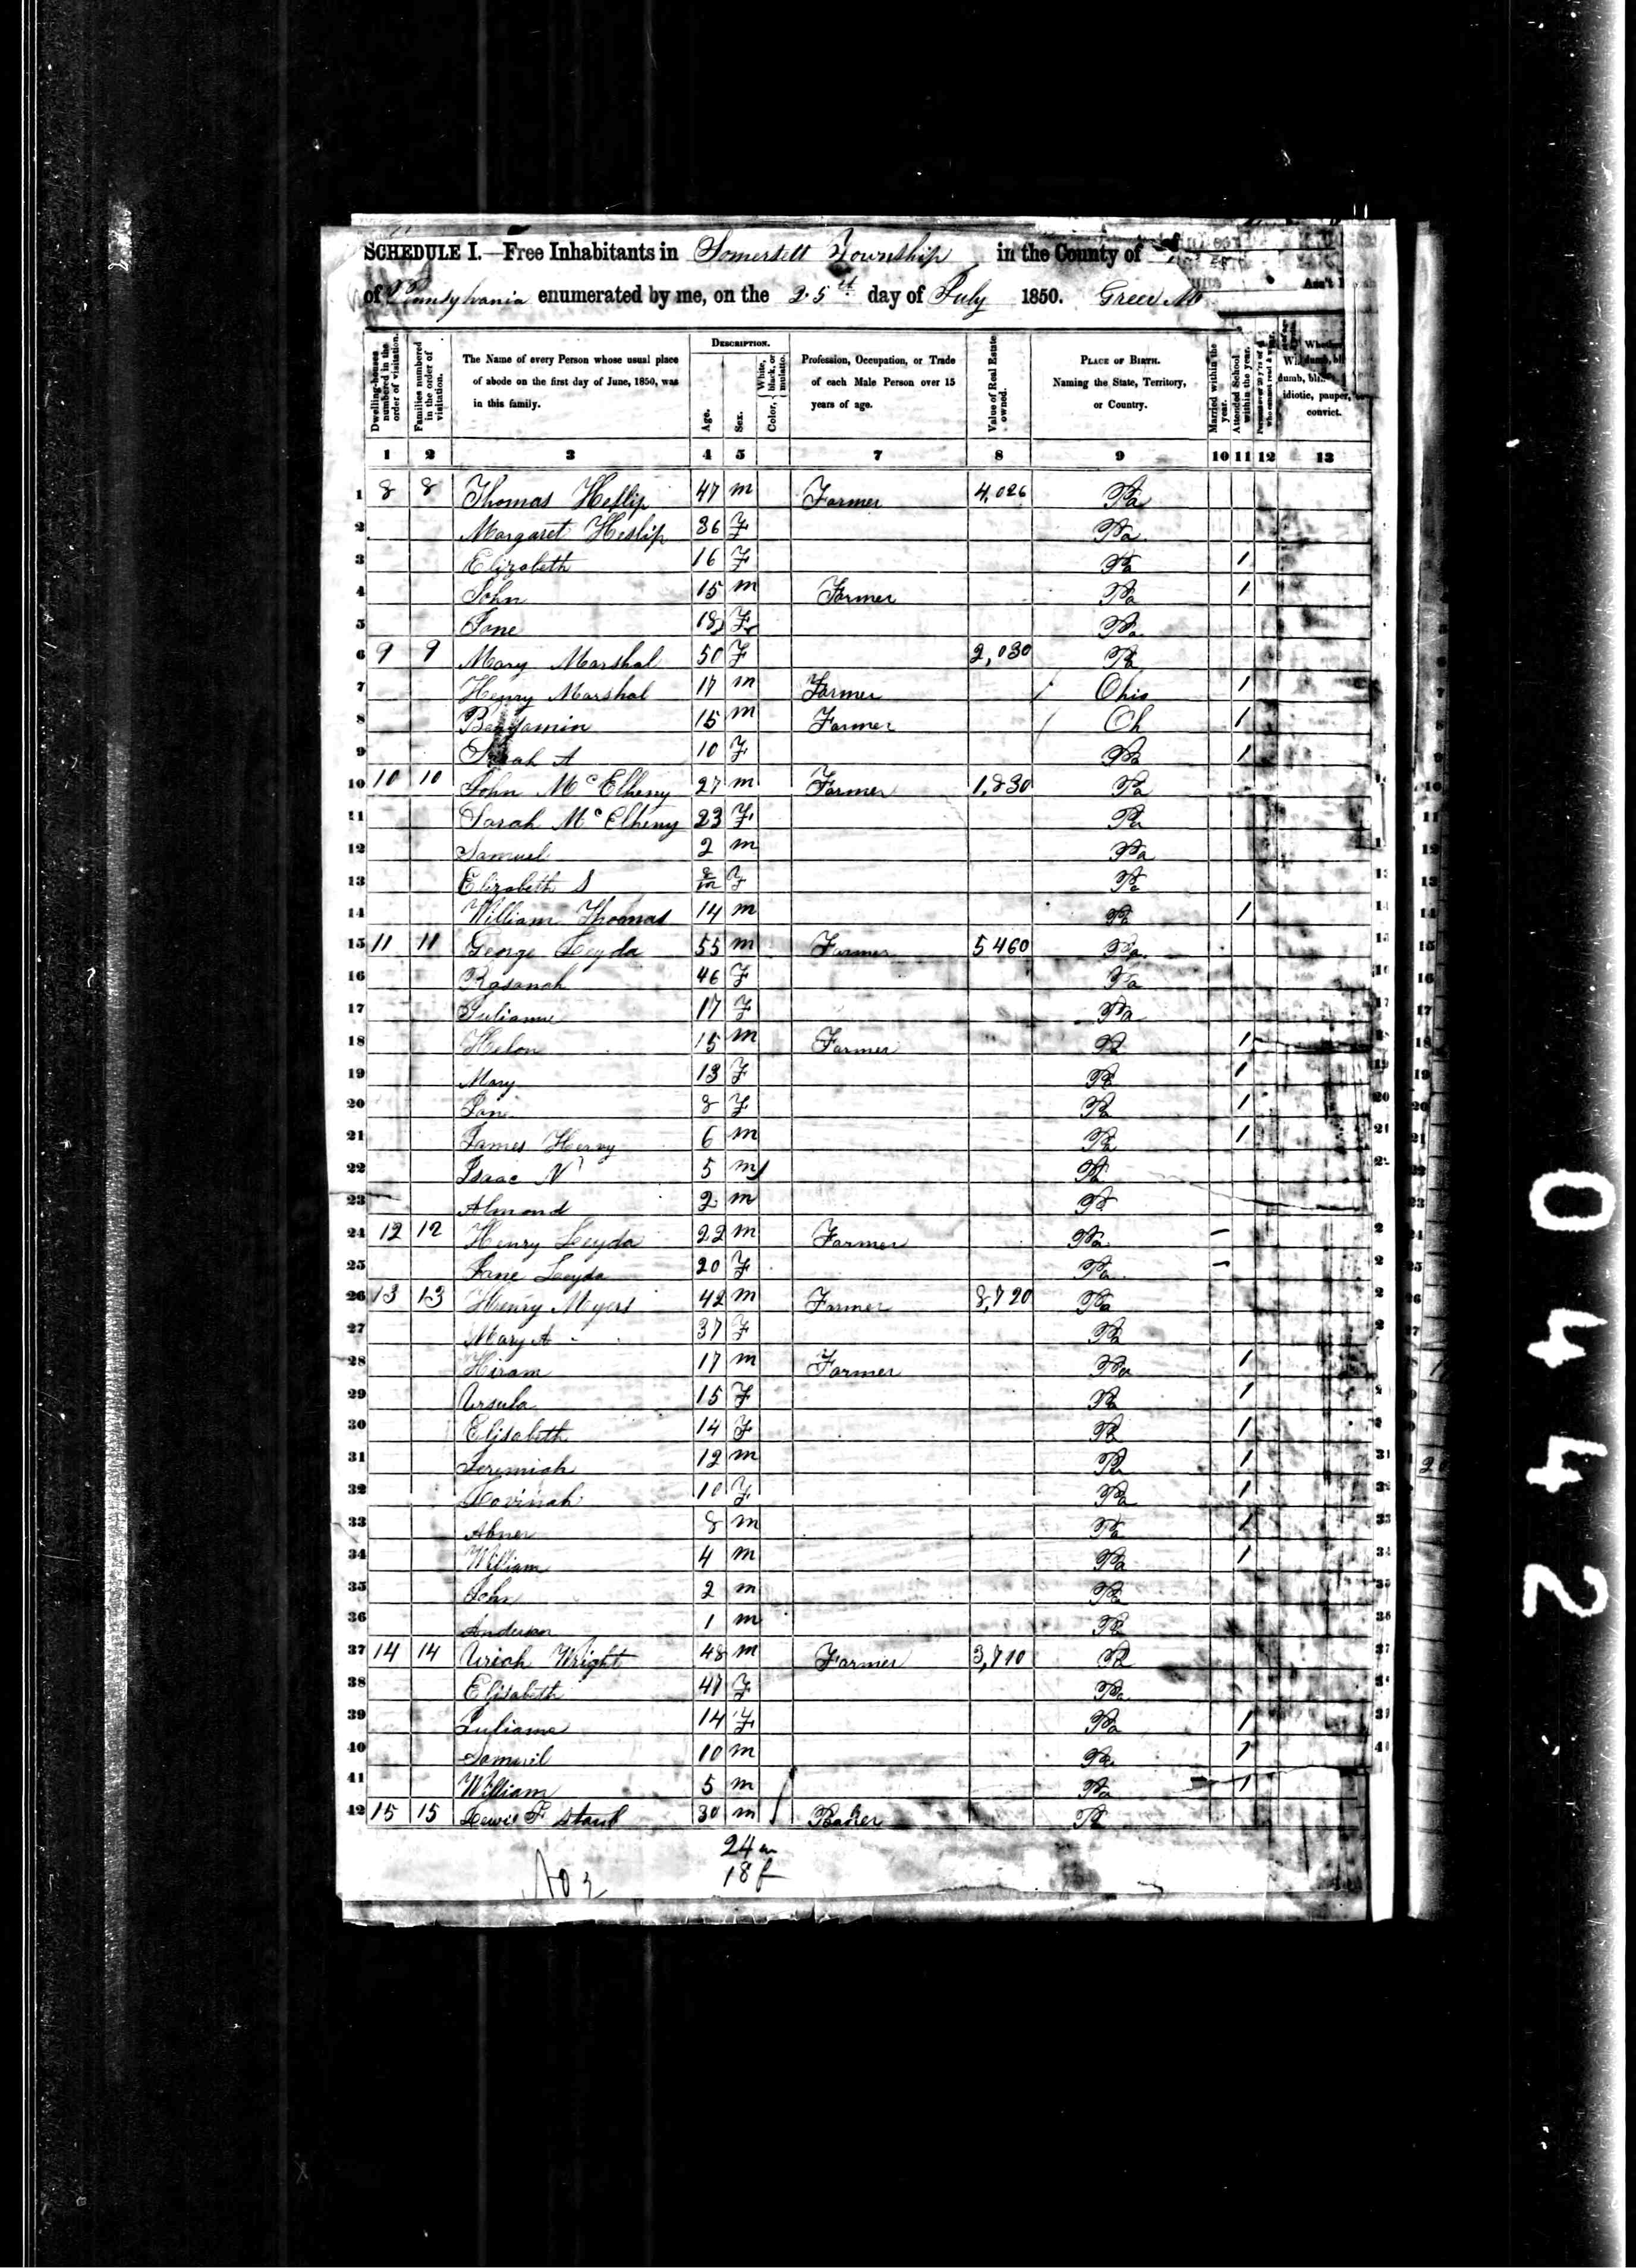 SCHEDULE I.—Free Inhabitants in Somersett Township in the County of
of Pennsylvania enumerated by me, on the 25th day of July 1850. Ass't
Dwelling-houses numbered in the order of visitation. Families numbered in the order of visitation. The Name of every Person whose usual place of abode on the first day of June, 1850, was in this family. DESCRIPTION. Age. Sex. Color, White, black, or mulatto. Profession, Occupation, or Trade of each Male Person over 15 years of age. Value of Real Estate owned. PLACE OF BIRTH. Naming the State, Territory, or Country. Married within the year. Attended School within the year. Whether dumb, idiotic, pauper, convict.
1 2 3 4 5 7 8 9 10 11 12 13
1 8 8 Thomas Heslip 47 m Farmer 4,026 Pa
2 Margaret Heslip 36 F Pa
3 Elizabeth 16 F Pa 1
4 John 15 m Farmer Pa 1
5 Jane 18 F Pa
6 9 9 Mary Marshal 50 F 2,030 Pa
7 Henry Marshal 17 m Farmer Ohio 1
8 Benjamin 15 m Farmer Oh 1
9 Sarah A 10 F Pa 1
10 10 10 John McElheny 27 m Farmer 1,830 Pa
11 Sarah McElheny 23 F Pa
12 Samuel 2 m Pa
13 Elizabeth S 8/12 F Pa
14 William Thomas 14 m Pa 1
15 11 11 George Leyda 55 m Farmer 5460 Pa
16 Rosanah 46 F Pa
17 Julianne 17 F Pa
18 Helon 15 m Farmer Pa 1
19 Mary 13 F Pa 1
20 Jane 8 F Pa 1
21 James Hervy 6 m Pa 1
22 Isaac N 5 m Pa
23 Almond 2 m Pa
24 12 12 Henry Leyda 22 m Farmer Pa –
25 Jane Leyda 20 F Pa –
26 13 13 Henry Myers 42 m Farmer 8,720 Pa
27 Mary A 37 F Pa
28 Hiram 17 m Farmer Pa 1
29 Ursula 15 F Pa 1
30 Elisabeth 14 F Pa 1
31 Jeremiah 12 m Pa 1
32 Lovinah 10 F Pa 1
33 Abner 8 m Pa 1
34 William 4 m Pa 1
35 John 2 m Pa
36 Anderson 1 m Pa
37 14 14 Uriah Wright 48 m Farmer 3,710 Pa
38 Elisabeth 47 F Pa
39 Juliame 14 F Pa 1
40 Samuel 10 m Pa 1
41 William 5 m Pa 1
42 15 15 Lewis F Staub 30 m Baker Pa
24 m
18 f
0442